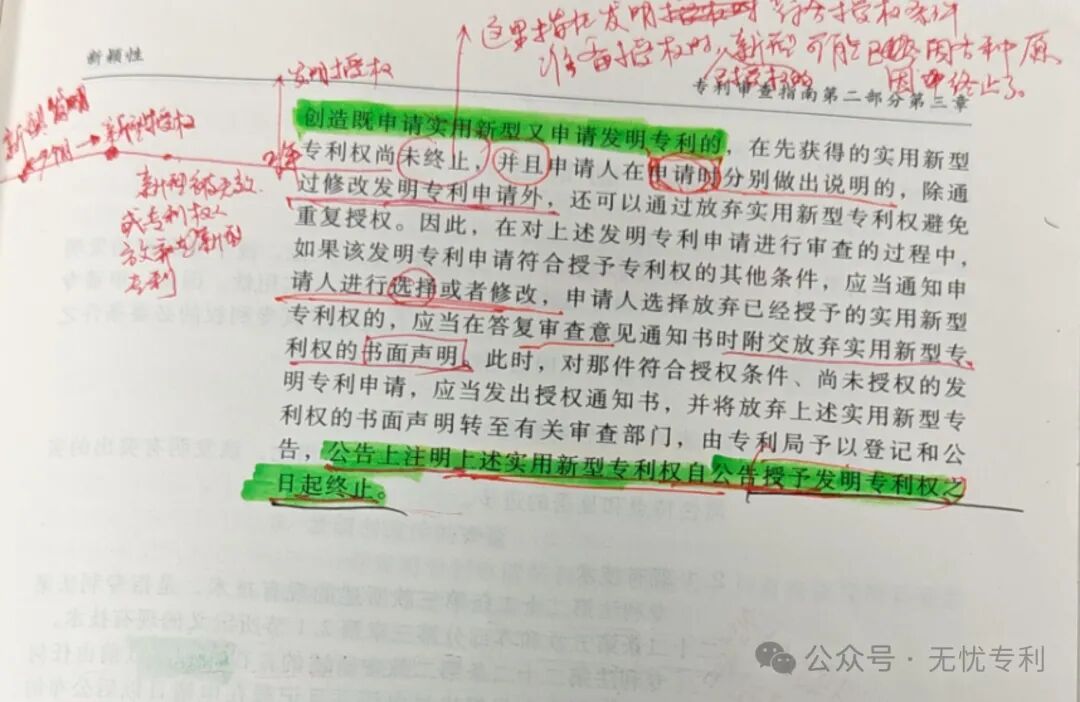 这里指在发明 符合授权条件
准备授权时，新型可能已经因各种原
因 终止了。
新颖性
专利审查指南第二部分第三章
发明授权
新型授权
2年
新型被无效
或专利权人
放弃 新型
专利
创造既申请实用新型又申请发明专利的，在先获得的实用新型
专利权尚未终止，并且申请人在申请时分别做出说明的，除通
过修改发明专利申请外，还可以通过放弃实用新型专利权避免
重复授权。因此，在对上述发明专利申请进行审查的过程中，
如果该发明专利申请符合授予专利权的其他条件，应当通知申
请人进行选择或者修改，申请人选择放弃已经授予的实用新型
专利权的，应当在答复审查意见通知书时附交放弃实用新型专
利权的书面声明。此时，对那件符合授权条件、尚未授权的发
明专利申请，应当发出授权通知书，并将放弃上述实用新型专
利权的书面声明转至有关审查部门，由专利局予以登记和公
告，公告上注明上述实用新型专利权自公告授予发明专利权之
日起终止。
公众号·无忧专利